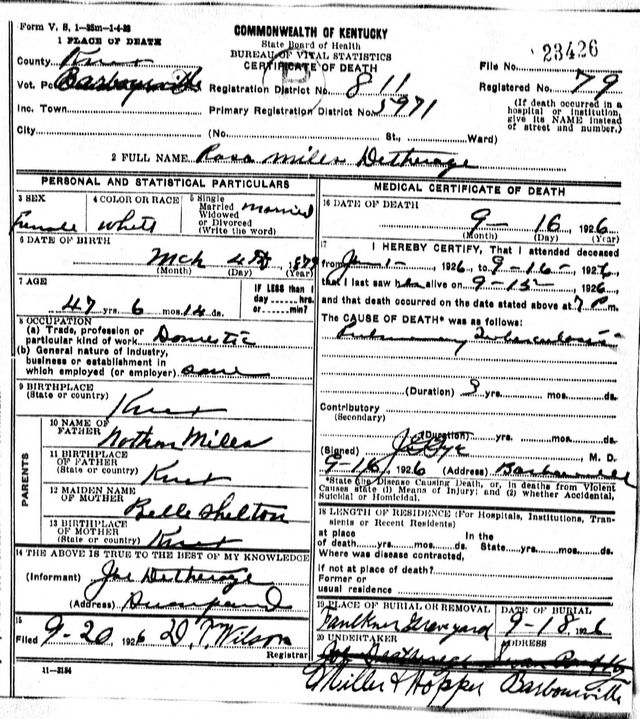 Form V. S. 1-35m-1-4-26
COMMONWEALTH OF KENTUCKY
State Board of Health
BUREAU OF VITAL STATISTICS
CERTIFICATE OF DEATH
1 PLACE OF DEATH
County Knox
File No. 23426
Vot. Pct Barbourville
Registration District No. 811
Registered No. 79
Inc. Town
Primary Registration District No. 5971
(If death occurred in a hospital or institution, give its NAME instead of street and number.)
City (No. St., Ward)
2 FULL NAME Rosa Miles Detherage
PERSONAL AND STATISTICAL PARTICULARS
3 SEX Female
4 COLOR OR RACE White
5 Single Married Widowed or Divorced (Write the word) Married
6 DATE OF BIRTH
Mch 4th 1879
(Month) (Day) (Year)
7 AGE
47 yrs. 6 mos. 12 ds.
IF LESS than 1 day hrs. or min?
8 OCCUPATION
(a) Trade, profession or particular kind of work Domestic
(b) General nature of industry, business or establishment in which employed (or employer) same
9 BIRTHPLACE
(State or country) Knox
PARENTS
10 NAME OF FATHER Nathan Miles
11 BIRTHPLACE OF FATHER
(State or country) Knox
12 MAIDEN NAME OF MOTHER Belle Shelton
13 BIRTHPLACE OF MOTHER
(State or country) Knox
14 THE ABOVE IS TRUE TO THE BEST OF MY KNOWLEDGE
(Informant) Joe Detherage
(Address)
15
Filed 9-20 1926 D. T. Wilson
Registrar
11-3184
MEDICAL CERTIFICATE OF DEATH
16 DATE OF DEATH
9-16, 1926
(Month) (Day) (Year)
17 I HEREBY CERTIFY, That I attended deceased
from Jan 1-, 1926, to 9-16-, 1926,
that I last saw her alive on 9-15-, 1926,
and that death occurred on the date stated above at 7 P.m.
The CAUSE OF DEATH* was as follows:
Pulmonary Tuberculosis
(Duration) yrs. mos. ds.
Contributory
(Secondary)
(Duration) yrs. mos. ds.
(Signed) M. D.
9-16, 1926 (Address) Barbourville
*State the Disease Causing Death, or, in deaths from Violent Causes state (1) Means of Injury; and (2) whether Accidental, Suicidal or Homicidal.
18 LENGTH OF RESIDENCE (For Hospitals, Institutions, Transients or Recent Residents)
at place of death yrs. mos. ds. In the State yrs. mos. ds.
Where was disease contracted,
If not at place of death?
Former or usual residence
19 PLACE OF BURIAL OR REMOVAL
Faulkner Graveyard
DATE OF BURIAL
9-18, 1926
20 UNDERTAKER
ADDRESS
Miller & Hopper Barbourville